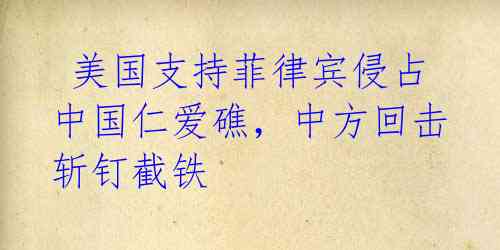 美国支持菲律宾侵占
中国仁爱礁，中方回击
斩钉截铁